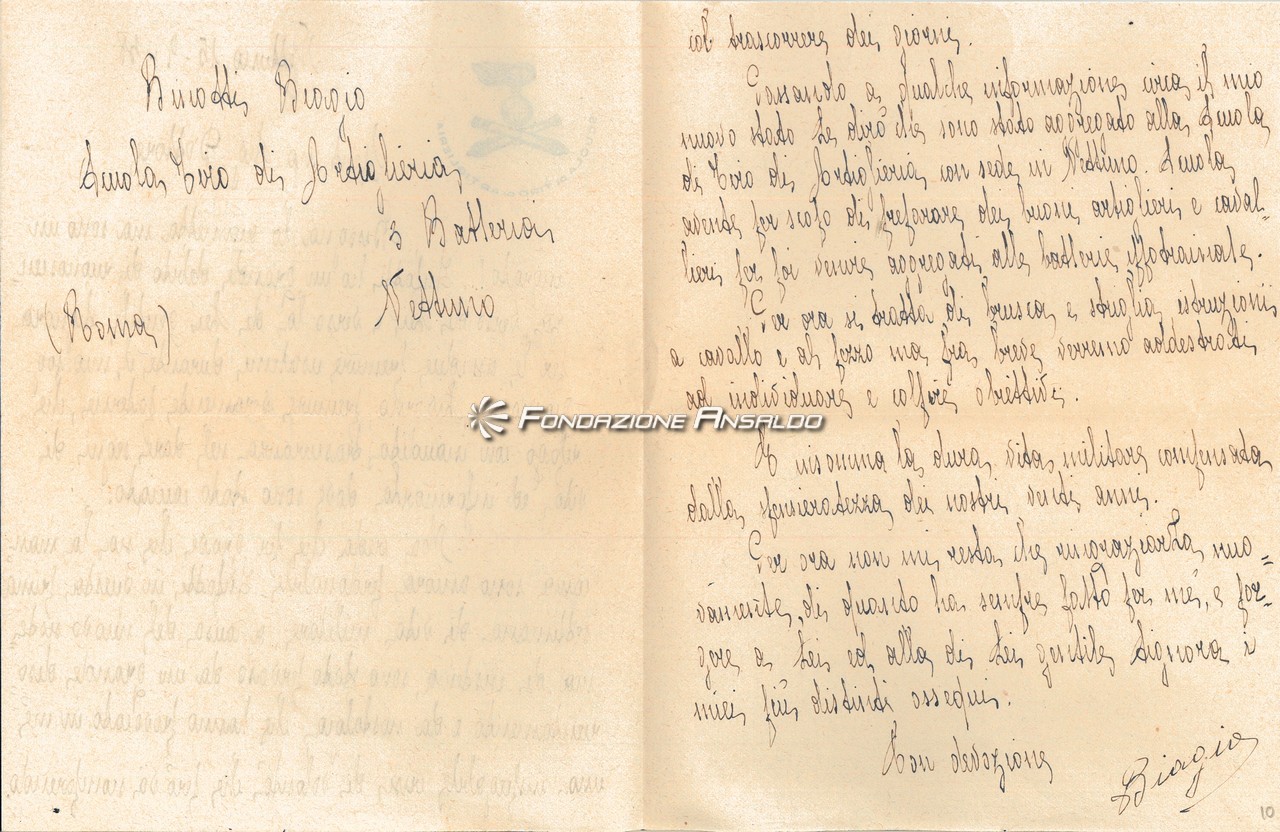 Binotti Biagio
Scuola Tiro di Artiglieria
3 Batteria
Nettuno
(Roma)
col trascorrere dei giorni.
Passando a qualche informazione circa il mio
nuovo stato Le dirò che sono stato aggregato alla Scuola
di Tiro di Artiglieria con sede in Nettuno. Scuola
avente per scopo di preparare dei buoni artiglieri e caval-
lieri per poi venire aggregati alle batterie ippotrainate.
Per ora si tratta di brusca e striglia, istruzioni
a cavallo e al pezzo ma fra breve verremo addestrati
ad individuare e colpire obiettivi.
E insomma la dura vita militare compensata
dalla spensieratezza dei nostri venti anni.
Per ora non mi resta che ringraziarLa nuo-
vamente di quanto ha sempre fatto per me, e por-
gere a Lei ed alla di Lei gentile Signora i
miei più distinti ossequi.
Con devozione
Biagio
FONDAZIONE ANSALDO
10